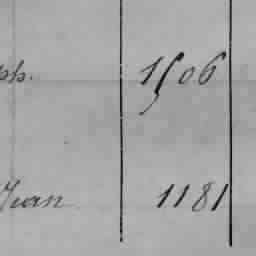 ph. 1506
Jean 1181